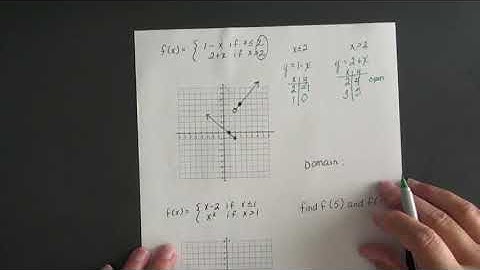 f(x) = { 1 - x if x ≤ 2
2 + x if x > 2
x ≤ 2
y = 1 - x
x | y
2 | -1
1 | 0
x > 2
y = 2 + x
x | y
2 | 4 open
3 | 5
Domain:
f(x) = { x - 2 if x ≤ 1
x² if x > 1
find f(5) and f(